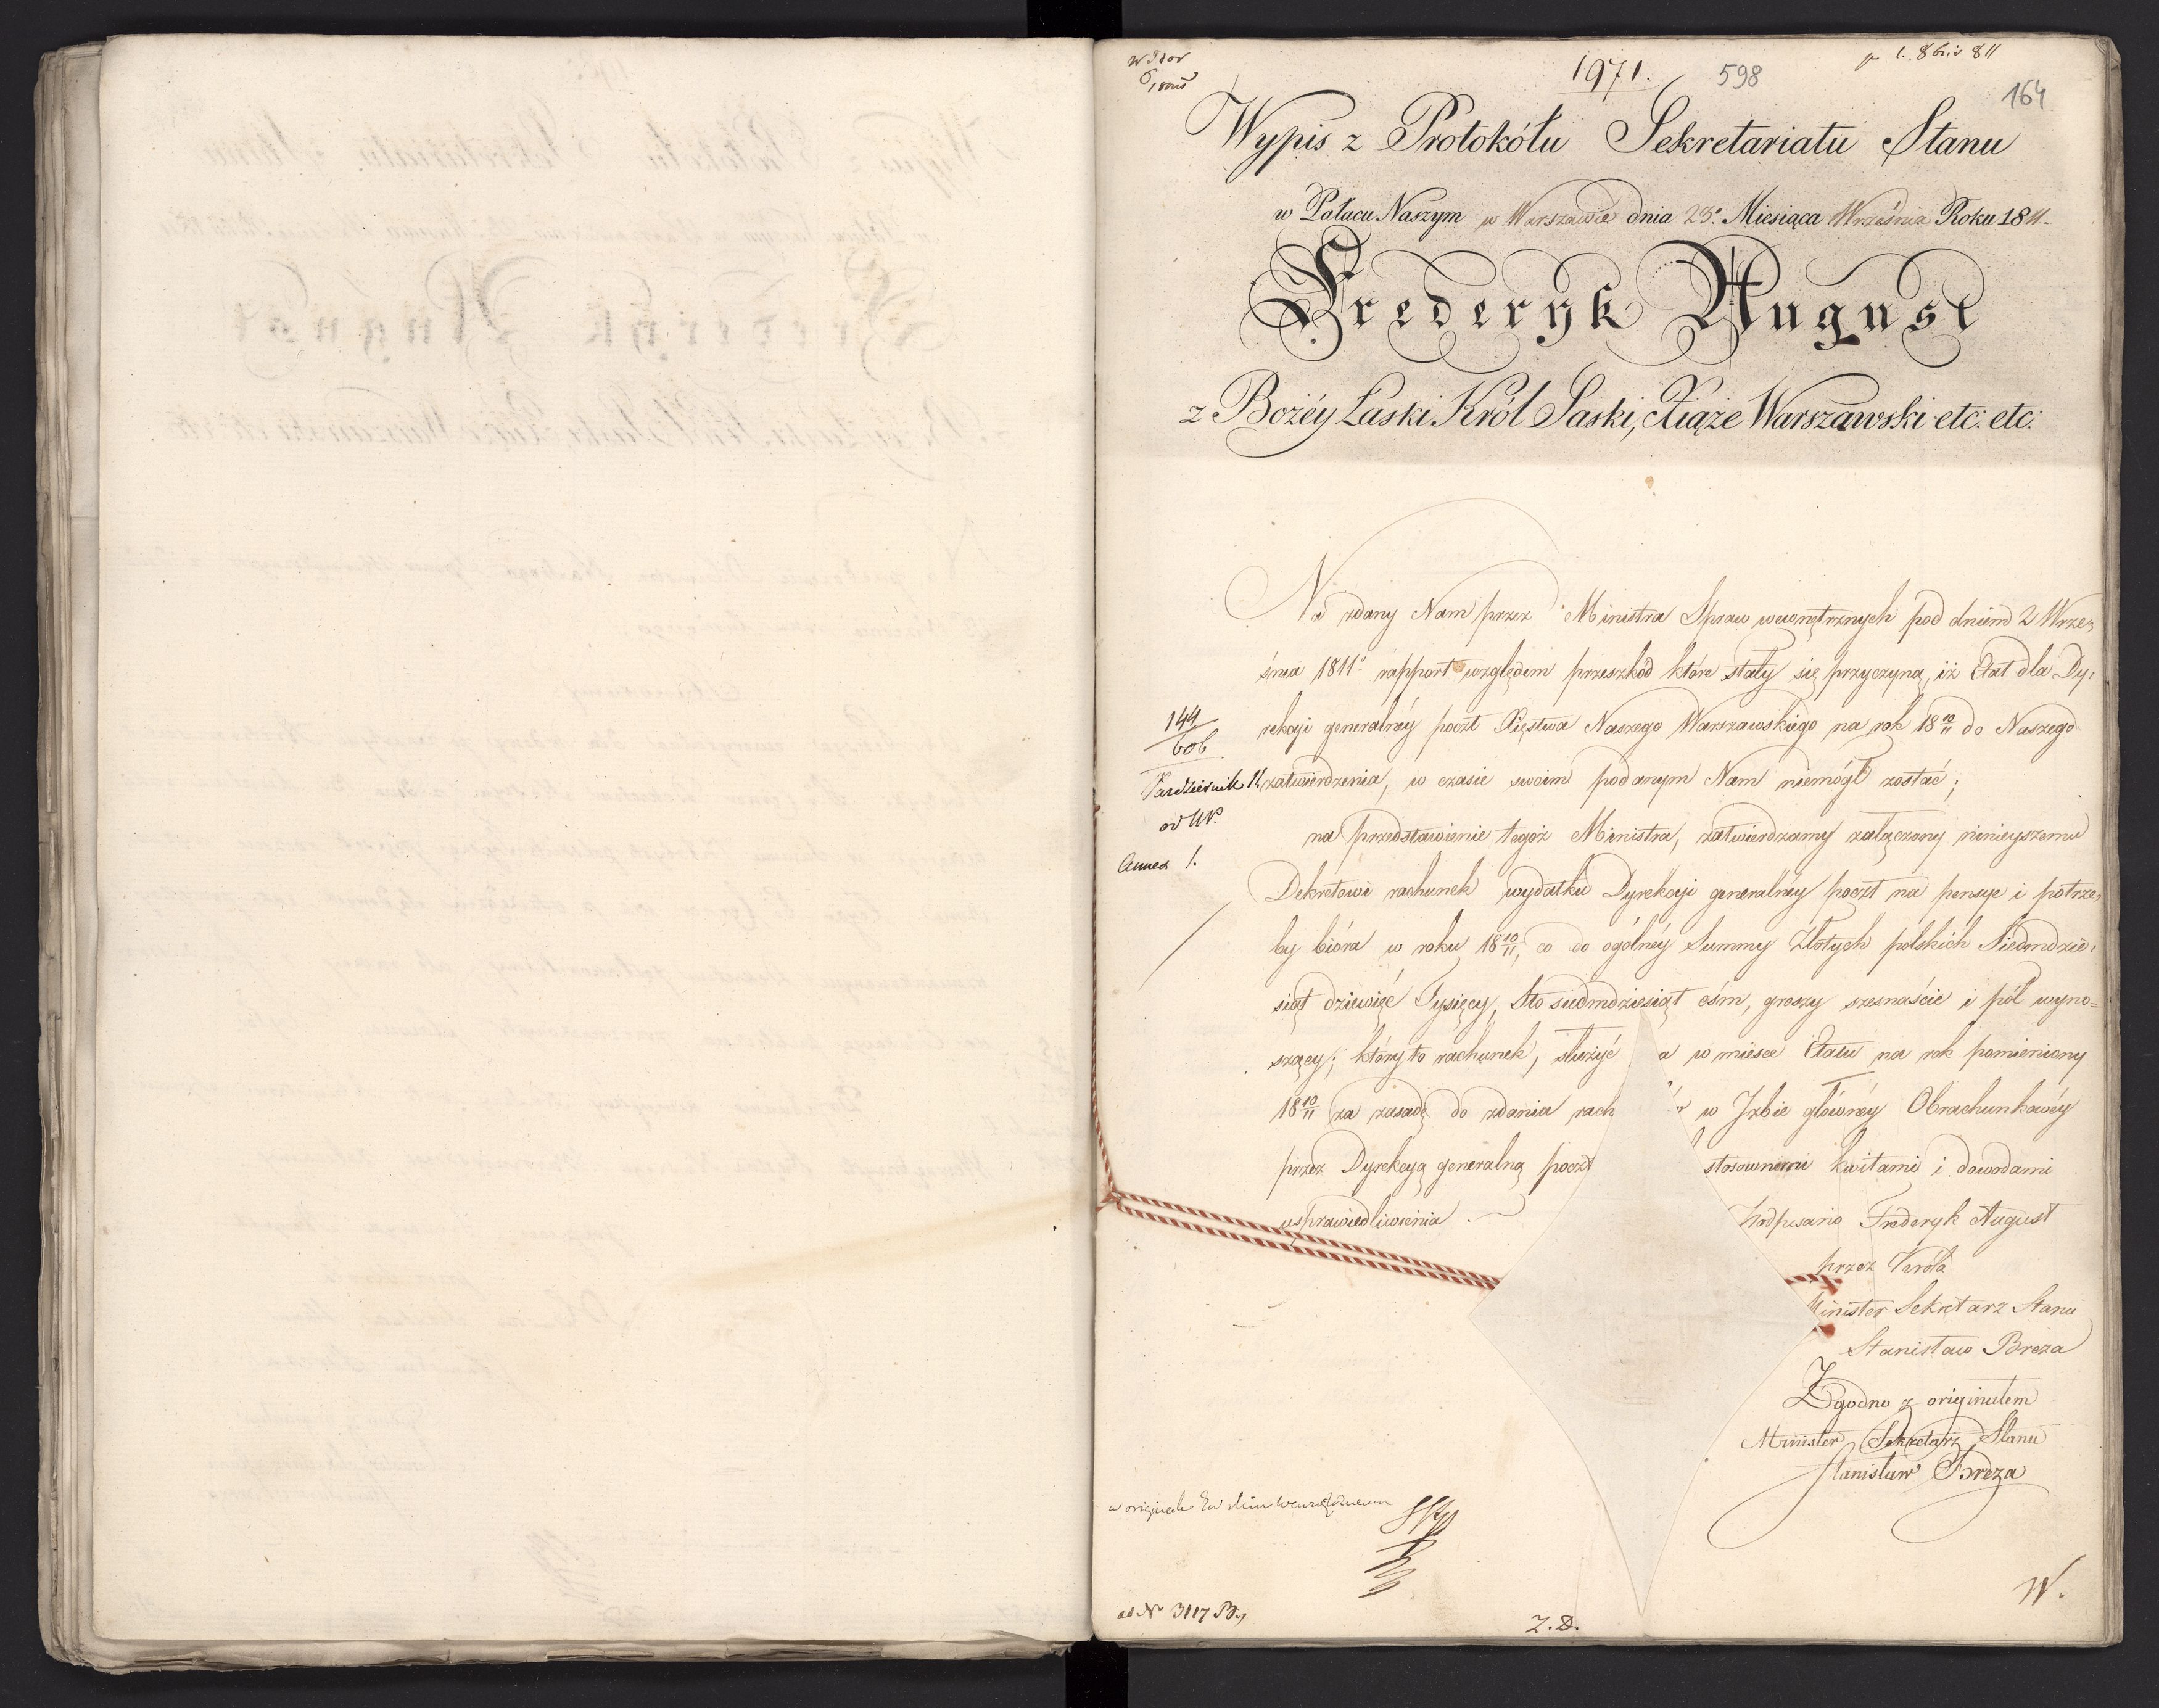 1971.
598
p 1. 8bris 811
164
Wypis z Protokółu Sekretariatu Stanu
w Pałacu Naszym w Warszawie dnia 23º Miesiąca Września Roku 1811.
Frederyk August
z Bożéy Łaski Król Saski, Xiąże Warszawski etc: etc:
Na zdany Nam przez Ministra Spraw wewnętrznych pod dniem 2 Wrze,
śnia 1811º rapport względem przeszkod które stały się przyczyną, iż Etat dla Dy,
rekcyi generalnéy poczt Xięstwa Naszego Warszawskiego na rok 18 10/11 do Naszego
zatwierdzenia, w czasie swoim podanym Nam niemógł zostać;
na przedstawienie tegoż Ministra, zatwierdzamy załączony ninieyszemu
Dekretowi rachunek wydatku Dyrekcyi generalnéy poczt na pensye i potrze,
by bióra w roku 18 10/11, co do ogólnéy Summy Złotych polskich Siedmdzie,
siąt dziewięć Tysięcy, Sto siedmdziesiąt ośm, groszy szesnaście i pół wyno=
szący; który to rachunek, służyć a w miesce Etatu na rok pomieniony
18 10/11 za zasadę do zdania rach w Izbie głównéy Obrachunkowéy
przez Dyrekcyą generalną poczt stosownemi kwitami i dowodami
usprawiedliwienia.
144/606
Pazdziernik 11
ad NP.
Annex 1.
Podpisano Frederyk August
przez Króla
Minister Sekretarz Stanu
Stanisław Breza
Zgodno z originałem
Minister Sekretarz Stanu
Stanisław Breza
w originale
W.
ad Nº 3117
Z. D.